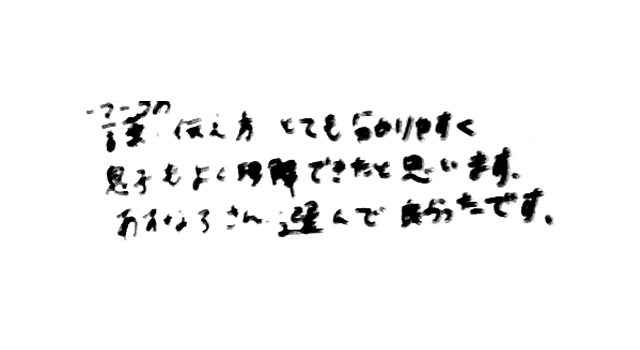 一つ一つの
伝え方 とても分かりやすく
息子もよく理解できたと思います。
あすなろさん 選んで良かったです。